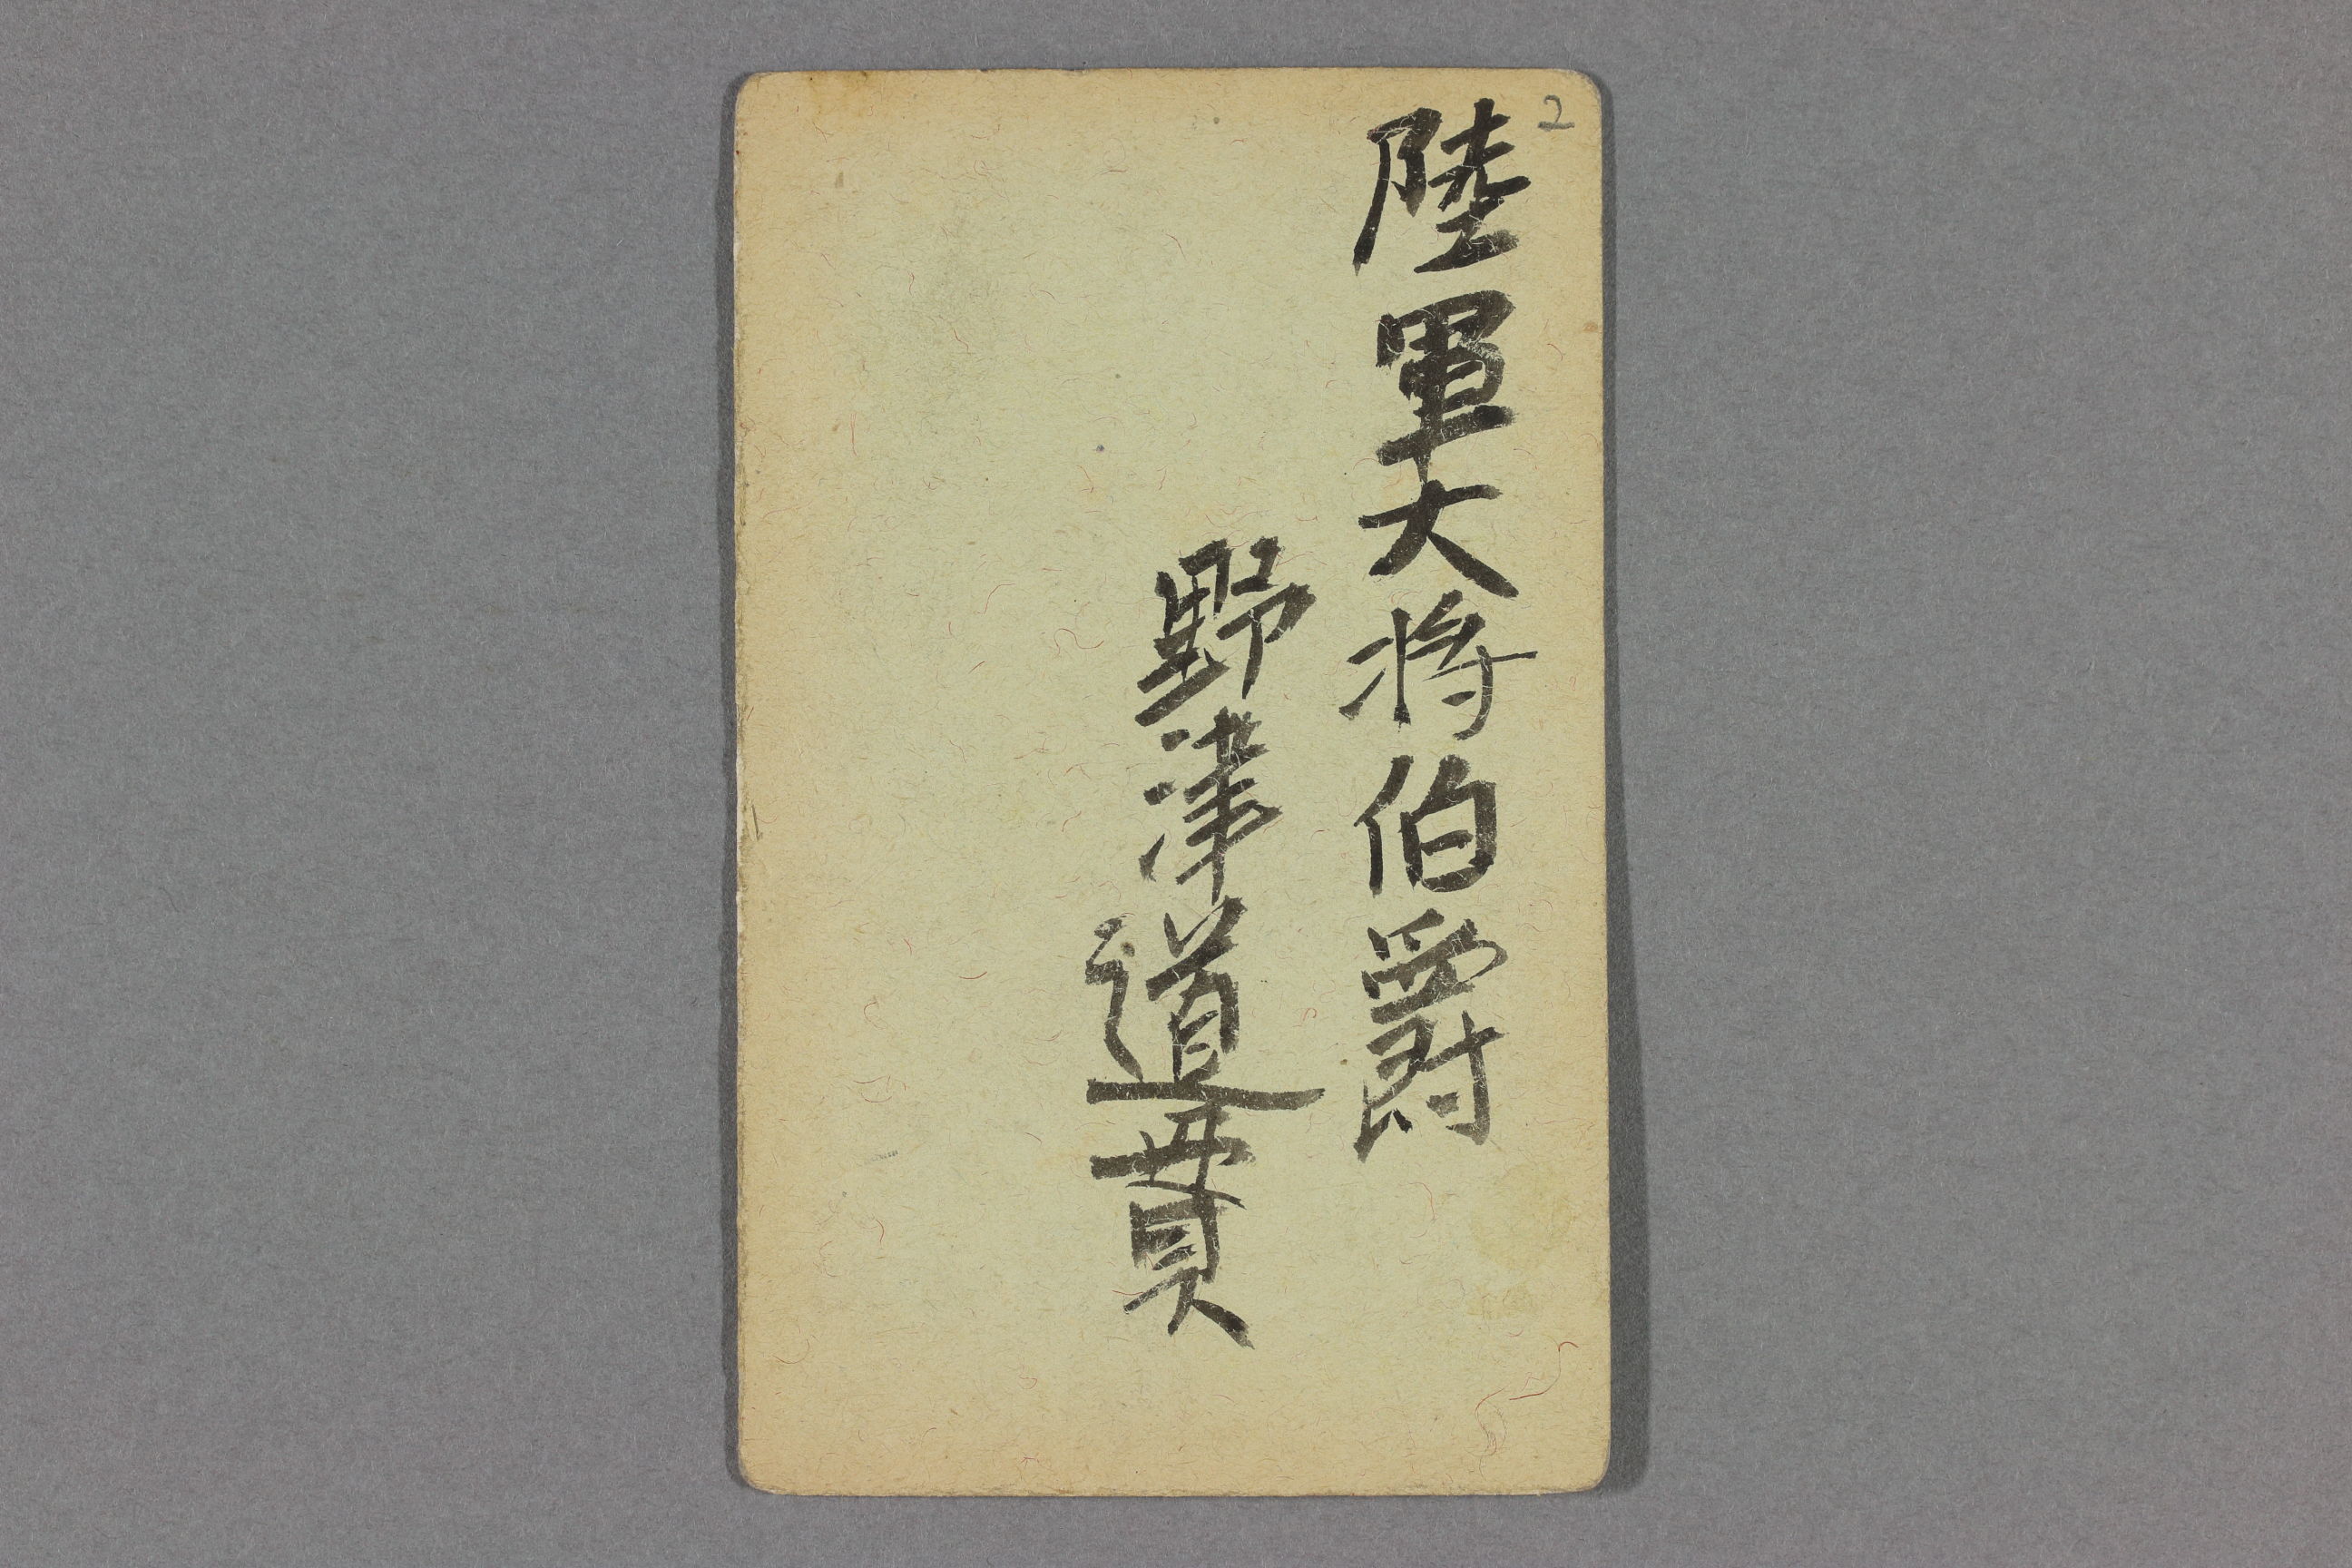 2
陸軍大将伯爵
野津道貫